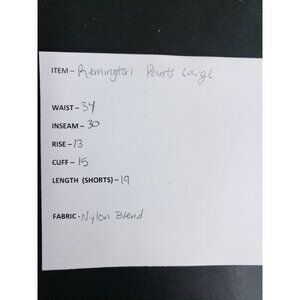 ITEM – Remington Pants Large
WAIST – 34
INSEAM – 30
RISE – 13
CUFF – 15
LENGTH (SHORTS) – 19
FABRIC – Nylon Blend